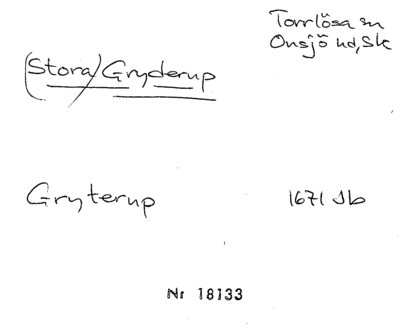 Torrlösa sn
Onsjö hd, Sk
(Stora) Gryderup
Gryterup 1671 Jb
Nr 18133